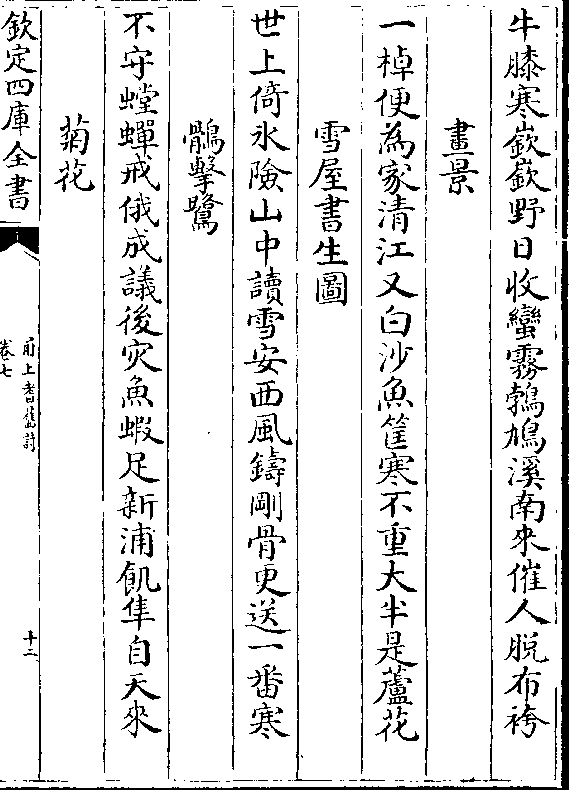 牛膝寒嶔嶔野日收蠻霧鵓鳩溪南來催人脱布袴
畫景
一棹便為家清江又白沙魚筐寒不重大半是蘆花
雪屋書生圖
世上倚氷險山中讀雪安西風鑄剛骨更送一番寒
鶻擊鷺
不守螳蟬戒俄成議後灾魚蝦足新浦飢隼自天來
菊花
欽定四庫全書
甬上耆舊詩
卷七
十二